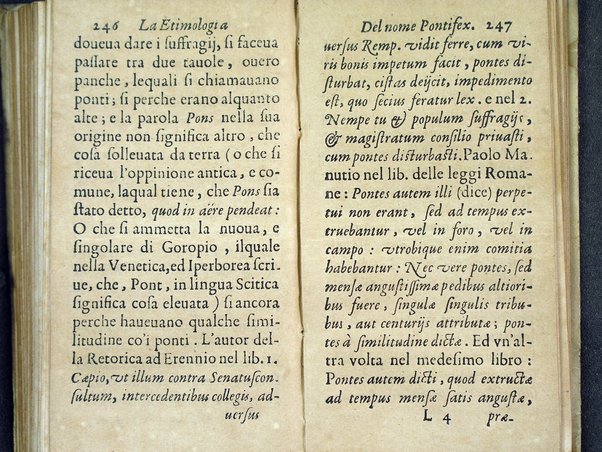 246 La Etimologia
doueua dare i suffragij, si faceua
passare tra due tauole, ouero
panche, lequali si chiamauano
ponti; si perche erano alquanto
alte; e la parola Pons nella sua
origine non significa altro, che
cosa solleuata da terra (o che si
riceua l'oppinione antica, e co-
mune, laqual tiene, che Pons sia
stato detto, quod in aëre pendeat:
O che si ammetta la nuoua, e
singolare di Goropio, ilquale
nella Venetica, ed Iperborea scri-
ue, che, Pont, in lingua Scitica
significa cosa eleuata) si ancora
perche haueuano qualche simi-
litudine co'i ponti. L'autor del-
la Retorica ad Erennio nel lib. 1.
Cæpio, vt illum contra Senatuscon-
sultum, intercedentibus collegis, ad-
uersus
Del nome Pontifex. 247
uersus Remp. vidit ferre, cum vi-
ris bonis impetum facit, pontes di-
sturbat, cistas deijcit, impedimento
est, quo secius feratur lex. e nel 2.
Nempe tu & populum suffragijs,
& magistratum consilio priuasti,
cum pontes disturbasti. Paolo Ma-
nutio nel lib. delle leggi Roma-
ne: Pontes autem illi (dice) perpe-
tui non erant, sed ad tempus ex-
truebantur, vel in foro, vel in
campo: vtrobique enim comitia
habebantur: Nec vere pontes, sed
mensæ angustissimæ pedibus altiori-
bus fuere, singulæ singulis tribu-
bus, aut centurijs attributæ; pon-
tes à similitudine dictæ. Ed vn'al-
tra volta nel medesimo libro:
Pontes autem dicti, quod extructæ
ad tempus mensæ satis angustæ,
L 4 præ-